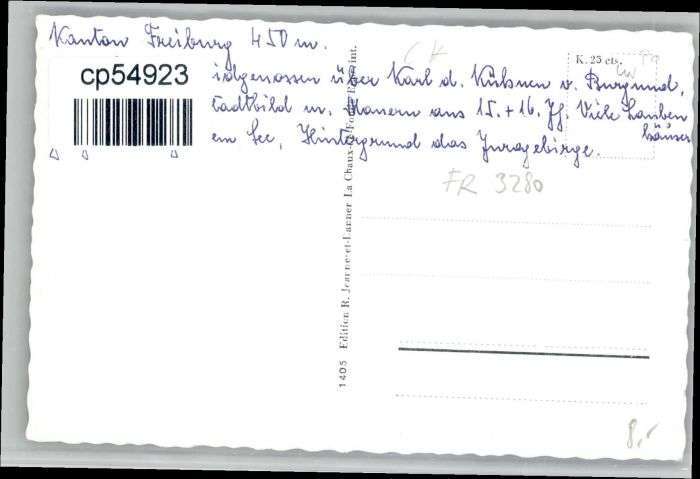 Kanton Freiburg 450 m.
cp54923
idgenossen über Karl d. Kühnen v. Burgund,
tadtbild m. Mauern aus 15. + 16. Jh. Viele Lauben
häuser
em See, Hintergrund das Juragebirge.
K. 25 cts.
CH
FR 3280
1405 Edition R. Jeanneret-Lanner La Chaux-de-Fonds int.
8,-